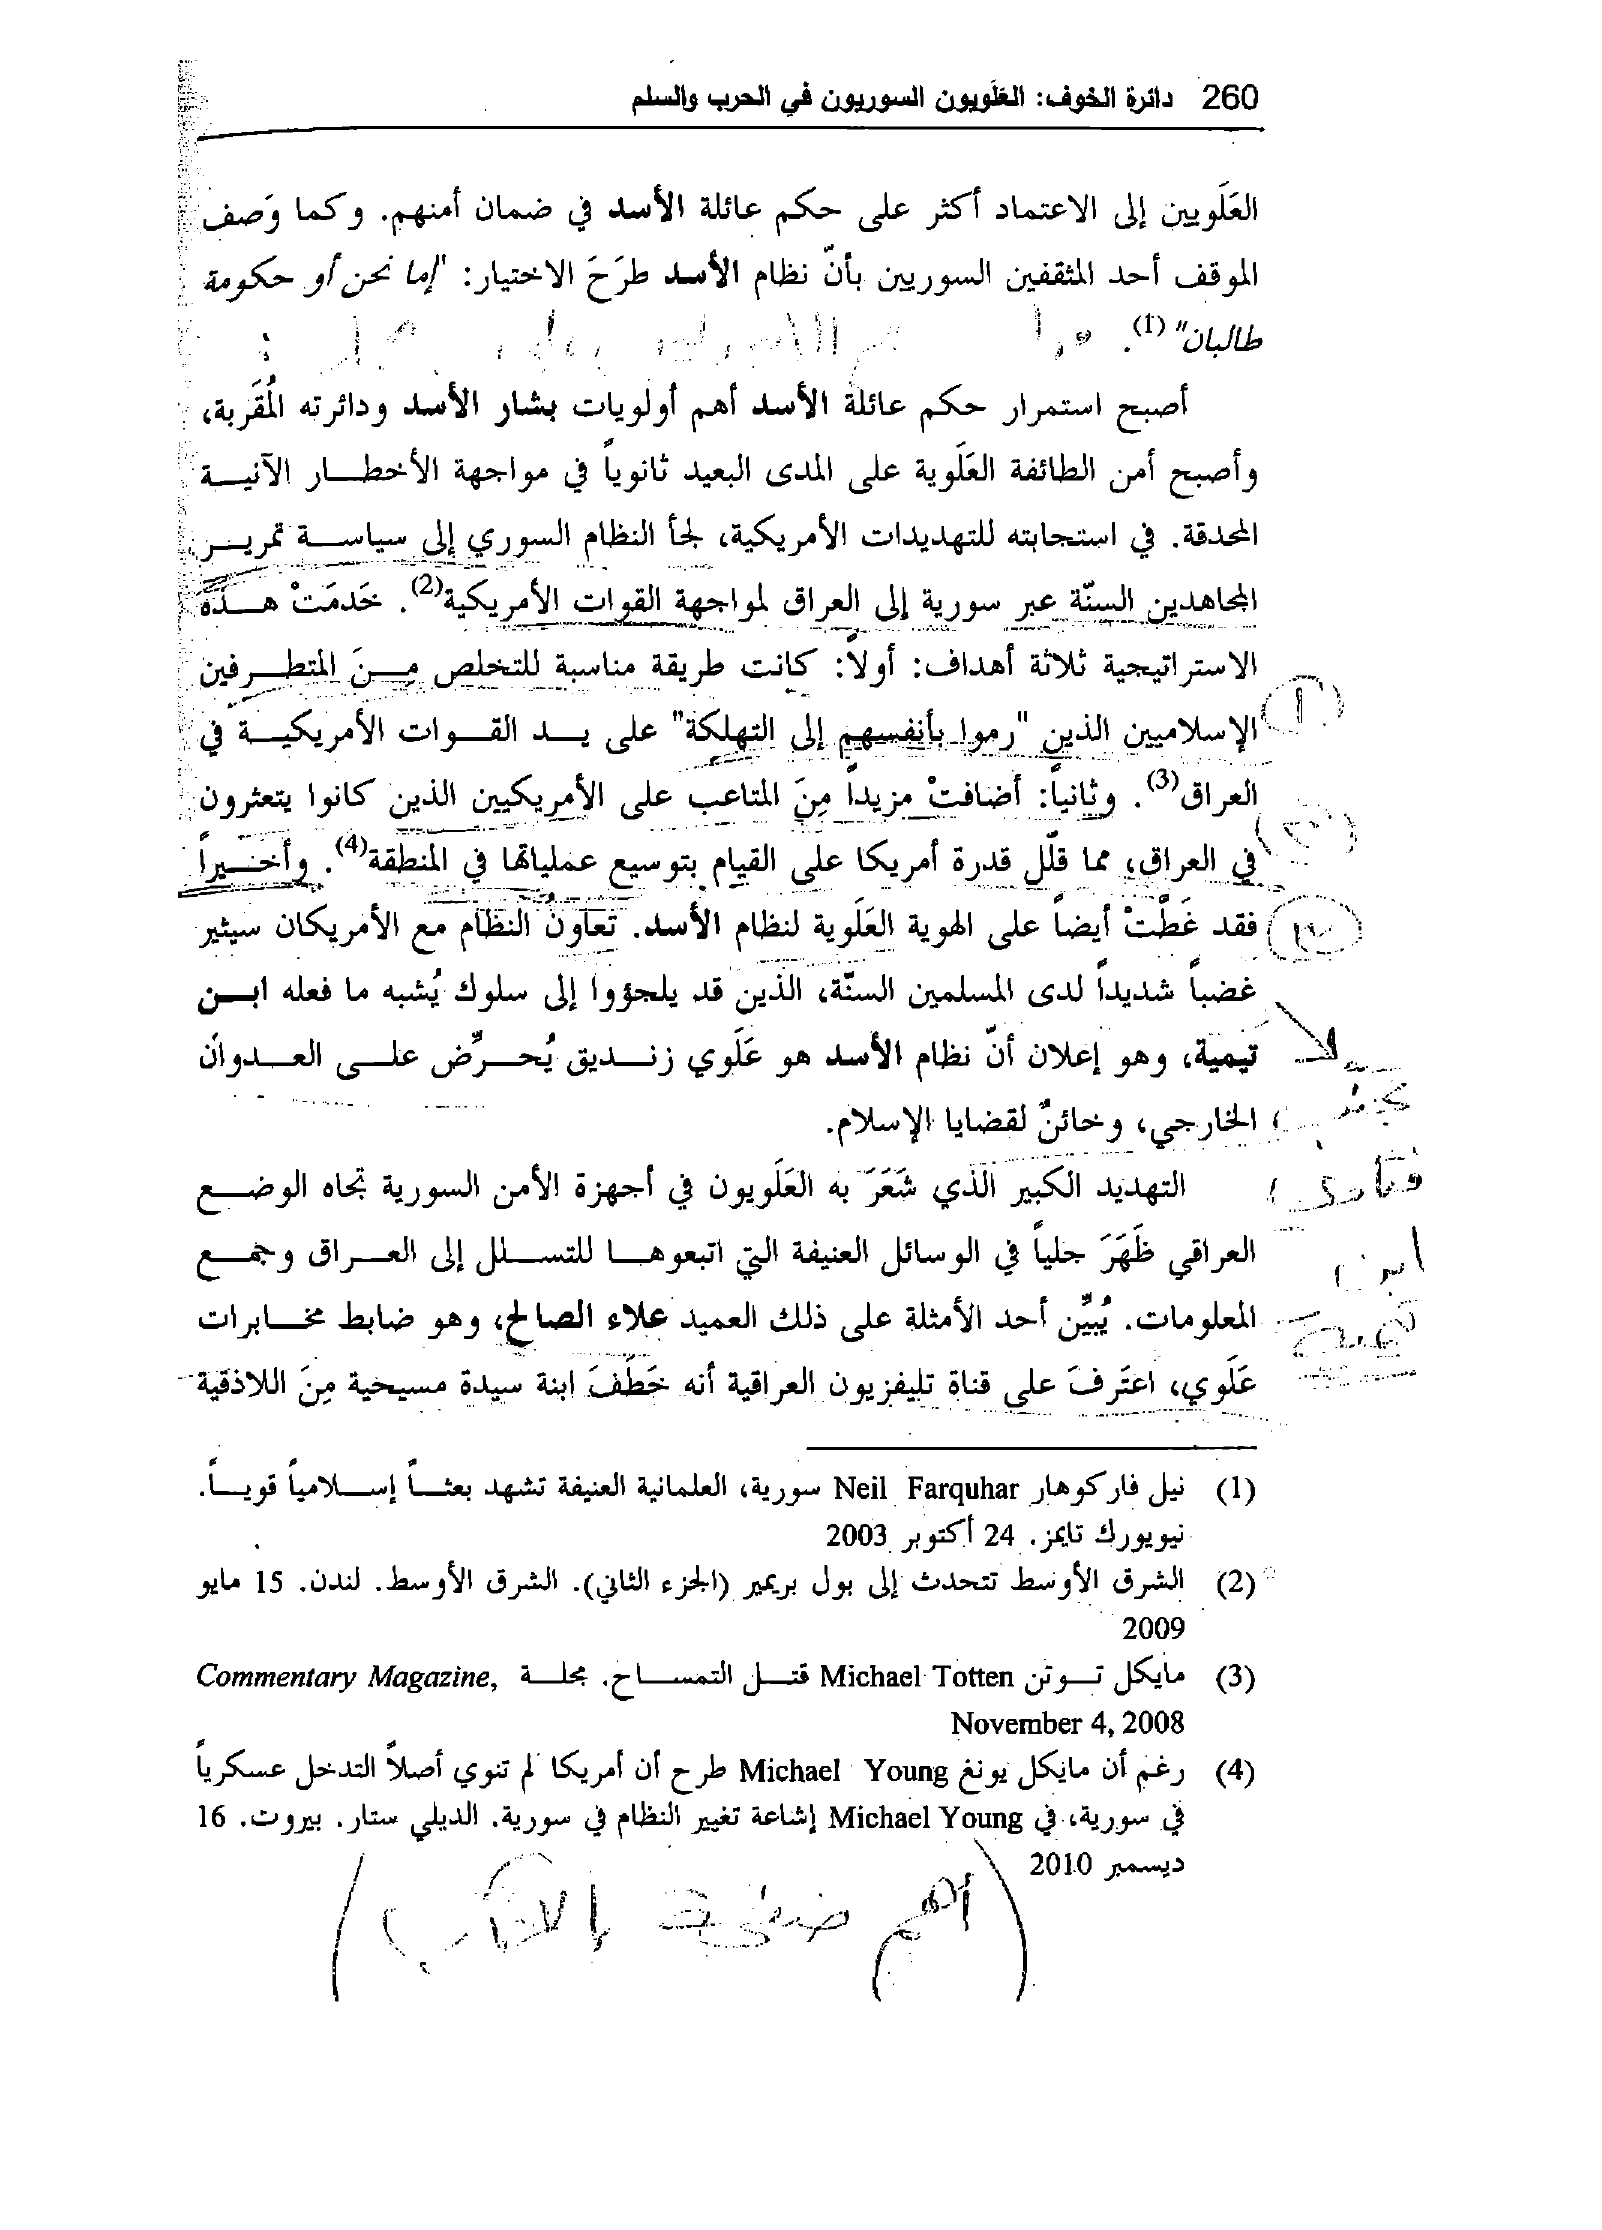 260 دائرة الخوف: العَلَويون السوريون في الحرب والسلم
العَلَويين إلى الاعتماد أكثر على حكم عائلة الأسد في ضمان أمنهم. وكما وَصف
الموقف أحد المثقفين السوريين بأنّ نظام الأسد طرَحَ الاختيار: "إما نحن أو حكومة
طالبان"(1).
أصبح استمرار حكم عائلة الأسد أهم أولويات بشار الأسد ودائرته المُقَربة،
وأصبح أمن الطائفة العَلَوية على المدى البعيد ثانوياً في مواجهة الأخطـــار الآنيـــة
المحدقة. في استجابته للتهديدات الأمريكية، لجأ النظام السوري إلى سياســة تمريــر
المجاهدين السنّة عبر سورية إلى العراق لمواجهة القوات الأمريكية(2). خَدمَتْ هــذه
الاستراتيجية ثلاثة أهداف: أولاً: كانت طريقة مناسبة للتخلص مِــنَ المتطــرفين
① الإسلاميين الذين "رموا بأنفسهم إلى التهلكة" على يــد القــوات الأمريكيــة في
العراق(3). وثانياً: أضافتْ مزيداً مِنَ المتاعب على الأمريكيين الذين كانوا يتعثرون
في العراق، مما قلّل قدرة أمريكا على القيام بتوسيع عملياتها في المنطقة(4). وأخــيراً
فقد غَطّتْ أيضاً على الهوية العَلَوية لنظام الأسد. تعاون النظام مع الأمريكان سيثير
غضباً شديداً لدى المسلمين السنّة، الذين قد يلجؤوا إلى سلوك يُشبه ما فعله ابــن
تيمية، وهو إعلان أنّ نظام الأسد هو عَلَوي زنــديق يُحــرِّض علــى العــدوان
الخارجي، وخائنٌ لقضايا الإسلام.
التهديد الكبير الذي شَعَرَ به العَلَويون في أجهزة الأمن السورية تجاه الوضــع
العراقي ظَهَرَ جلياً في الوسائل العنيفة التي اتبعوهــا للتســلل إلى العــراق وجمــع
المعلومات. يُبيِّن أحد الأمثلة على ذلك العميد علاء الصالح، وهو ضابط مخــابرات
عَلَوي، اعتَرفَ على قناة تليفزيون العراقية أنه خَطَفَ ابنة سيدة مسيحية مِنَ اللاذقية
تجنب
فتاوى
ابن
تيمية
(1) نيل فاركوهار Neil Farquhar سورية، العلمانية العنيفة تشهد بعثــاً إســلامياً قويــاً.
نيويورك تايمز. 24 أكتوبر 2003
(2) الشرق الأوسط تتحدث إلى بول بريمير (الجزء الثاني). الشرق الأوسط. لندن. 15 مايو
2009
(3) مايكل تــوتن Michael Totten قتــل التمســاح. مجلــة Commentary Magazine,
November 4, 2008
(4) رغم أن مايكل يونغ Michael Young طرح أن أمريكا لم تنوي أصلاً التدخل عسكرياً
في سورية، في Michael Young إشاعة تغيير النظام في سورية. الديلي ستار. بيروت. 16
ديسمبر 2010
(أهم صفحة بالكتاب)